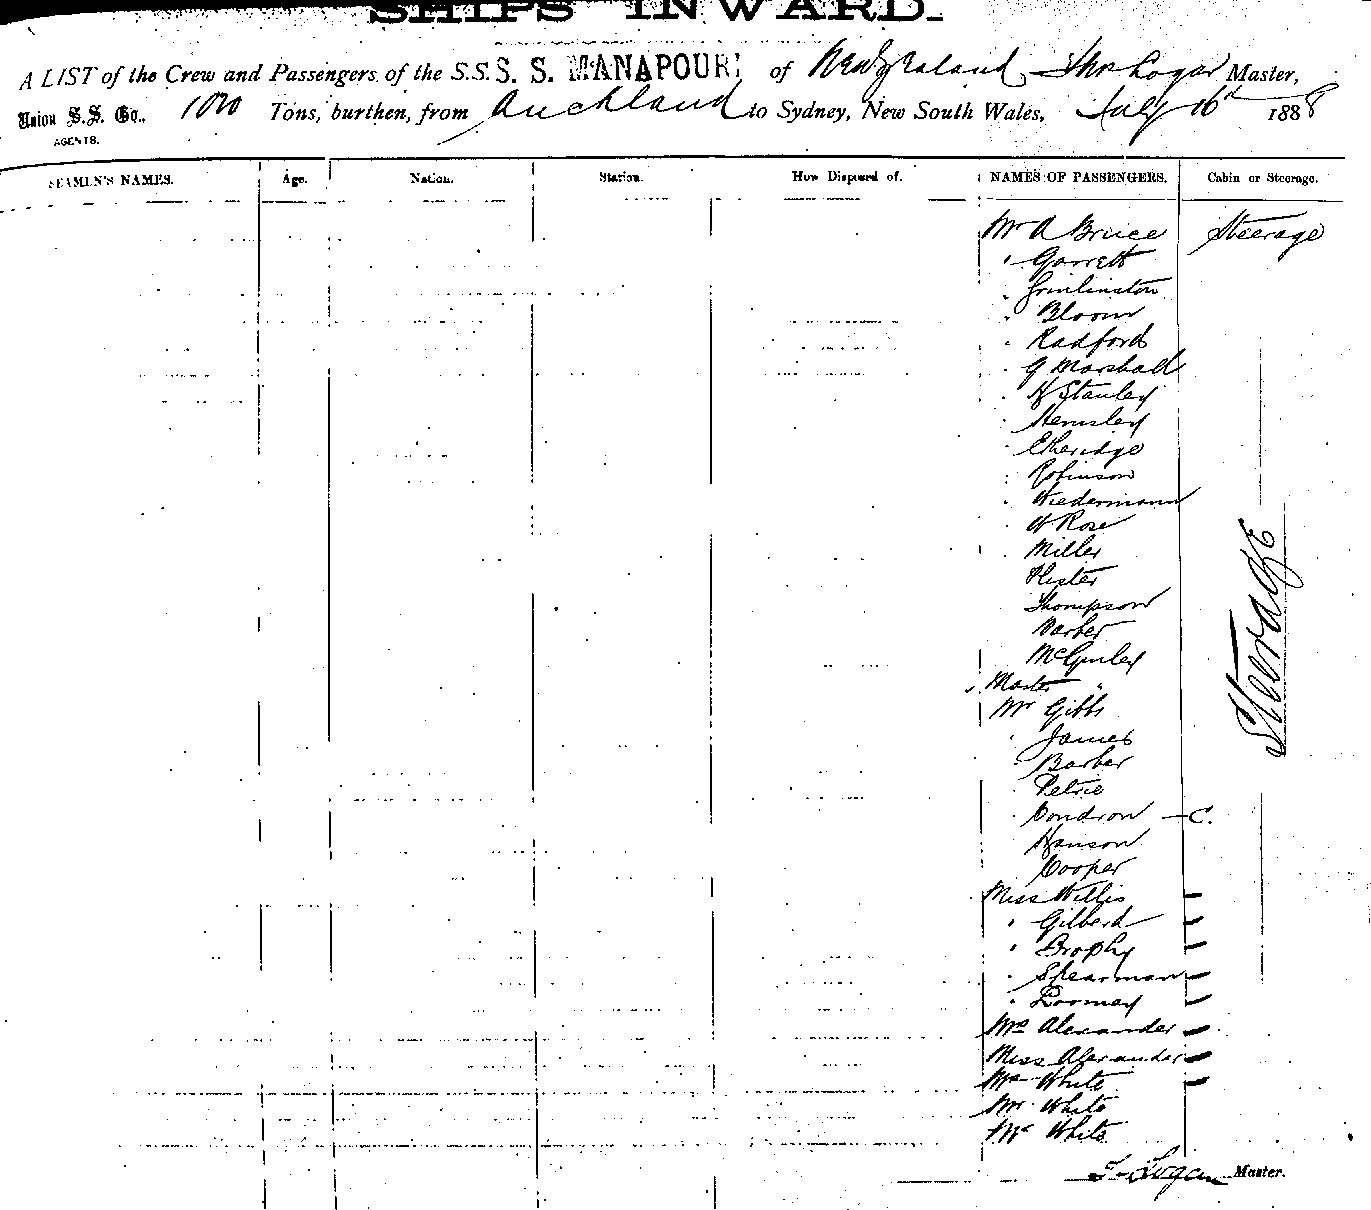 SHIPS INWARD.
A LIST of the Crew and Passengers of the S.S. S. S. MANAPOURI of New Zealand, Thos Logan Master,
Union S.S. Co., 1020 Tons, burthen, from Auckland to Sydney, New South Wales, July 16th 1888
AGENTS.
SEAMEN'S NAMES. Age. Nation. Station. How Disposed of. NAMES OF PASSENGERS. Cabin or Steerage.
Mr A Bruce Steerage
" Garrett
" Grimlinston
" Bloom
" Radford
" G Marshall
" H Stanley
" Hemsley
" Etheridge
" Robinson
" Wiedermann
" W Rose
" Miller
Thompson
Barber
McGinley
Master "
Mr Gibbs
" James
" Barber
" Petrie
" Condron - C.
Hanson
Cooper
Miss Willis -
" Gilbert -
" Brophy -
" Spearman -
" Toomey -
Mrs Alexander -
Miss Alexander -
Mrs White -
Mr White
Mr White
Steerage
T Logan Master.